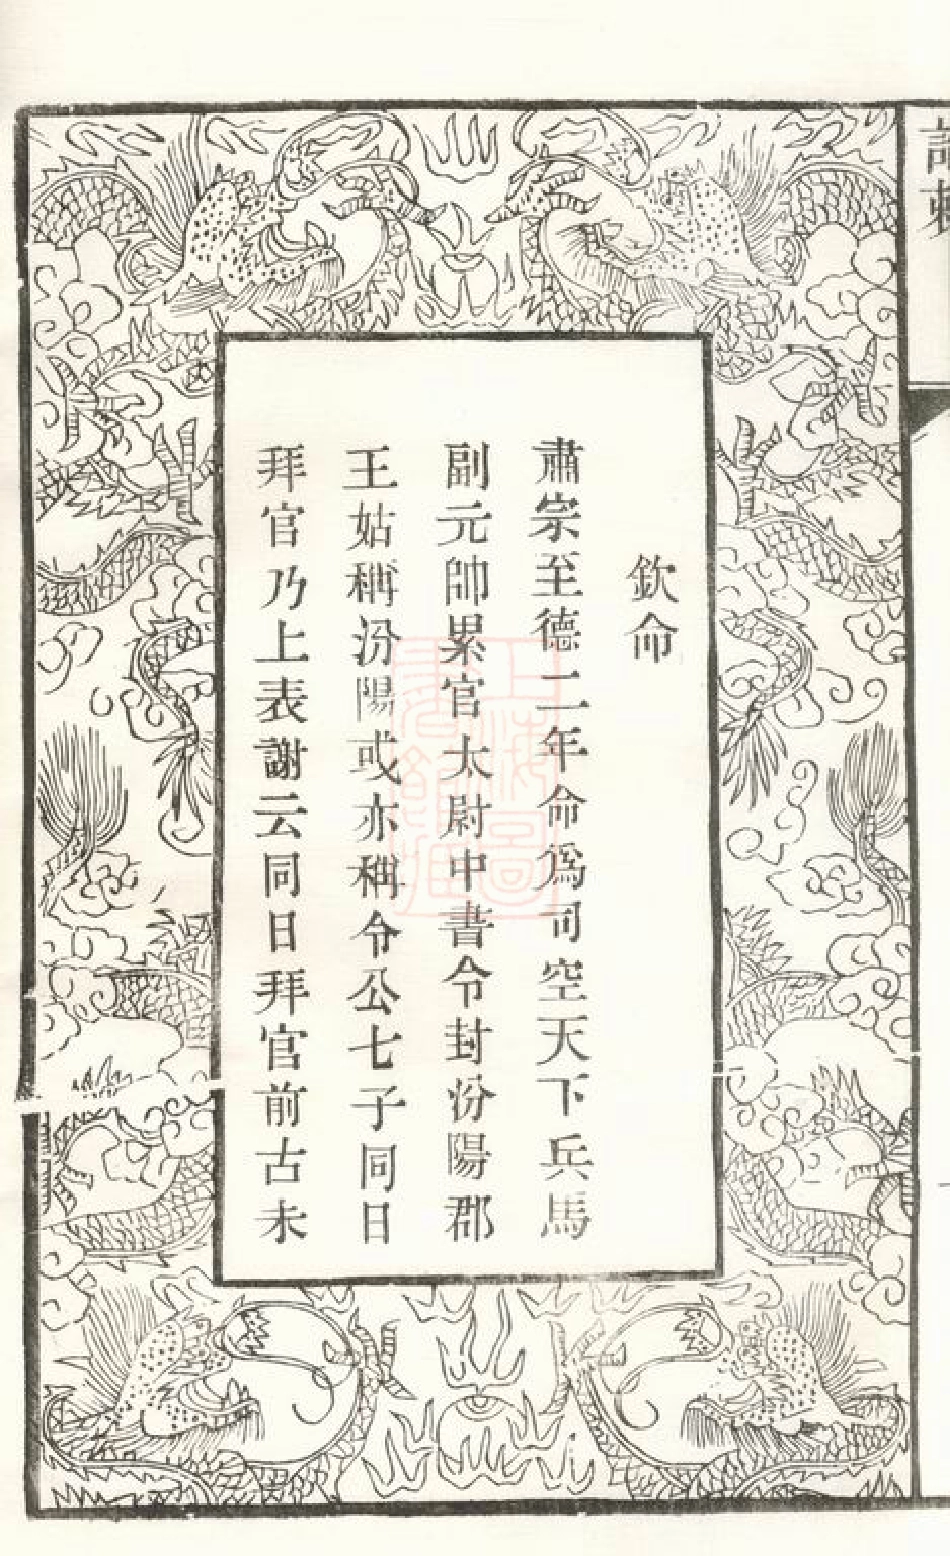 欽命
肅宗至德二年命爲司空天下兵馬
副元帥累官太尉中書令封汾陽郡
王姑稱汾陽或亦稱令公七子同日
拜官乃上表謝云同日拜官前古未
上海圖書館藏